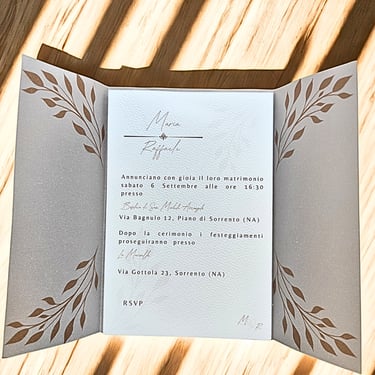 Maria
Raffaele
Annunciano con gioia il loro matrimonio
sabato 6 Settembre alle ore 16:30
presso
Basilica di San Michele Arcangelo
Via Bagnulo 12, Piano di Sorrento (NA)
Dopo la cerimonia i festeggiamenti
proseguiranno presso
Via Gottola 23, Sorrento (NA)
RSVP
M R